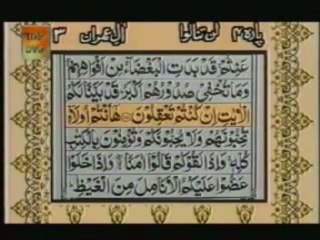 پارہ ۴ لن تنالوا آل عمران ۳
عَنِتُّمْ قَدْ بَدَتِ الْبَغْضَآءُ مِنْ أَفْوَاهِهِمْ
وَمَا تُخْفِي صُدُورُهُمْ أَكْبَرُ قَدْ بَيَّنَّا لَكُمُ
الْآيٰتِ إِنْ كُنْتُمْ تَعْقِلُونَ هَآأَنْتُمْ أُولَآءِ
تُحِبُّونَهُمْ وَلَا يُحِبُّونَكُمْ وَتُؤْمِنُونَ بِالْكِتٰبِ
كُلِّهٖ وَإِذَا لَقُوكُمْ قَالُوٓا اٰمَنَّا وَإِذَا خَلَوْا
عَضُّوا عَلَيْكُمُ الْأَنَامِلَ مِنَ الْغَيْظِ